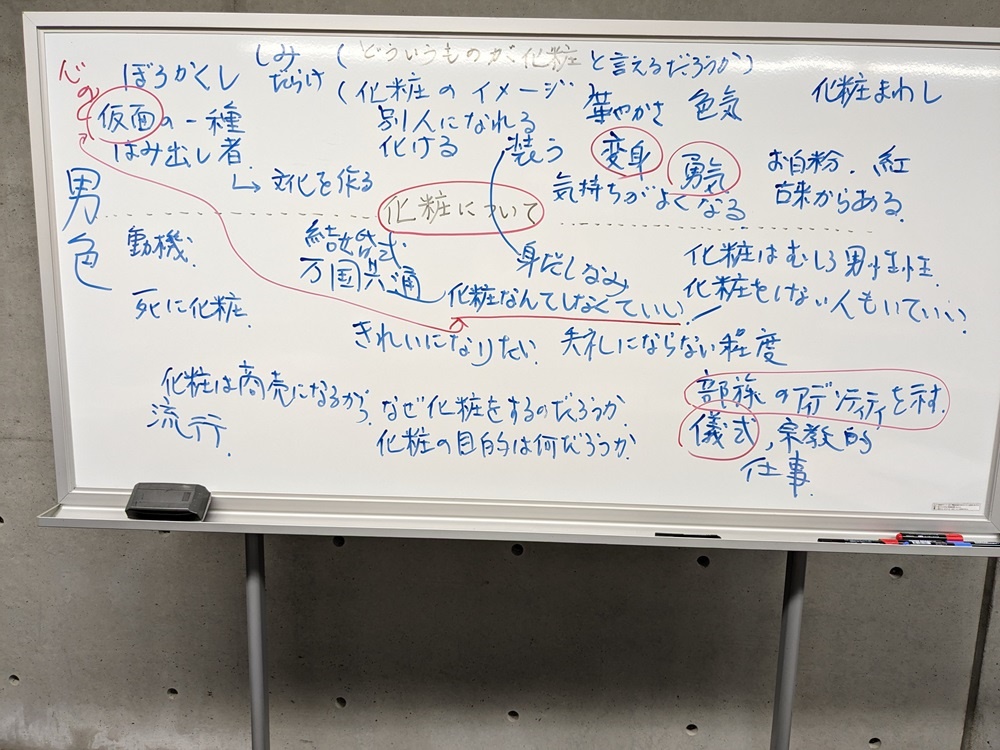 しみだらけ
(どういうものが化粧と言えるだろうか)
(化粧のイメージ
心の
ぼろかくし
仮面の一種
はみ出し者
→文化を作る
別人になれる
化ける
装う
華やかさ
色気
変身
勇気
気持ちがよくなる
化粧まわし
お白粉、紅
古来からある
男色
化粧について
動機
結婚式
万国共通
身だしなみ
化粧はむしろ男性性
化粧をしない人もいていい
死に化粧
化粧なんてしなくていい
きれいになりたい
失礼にならない程度
化粧は商売になるから
流行
なぜ化粧をするのだろうか
化粧の目的は何だろうか
部族のアイデンティティを示す
儀式,宗教的
仕事